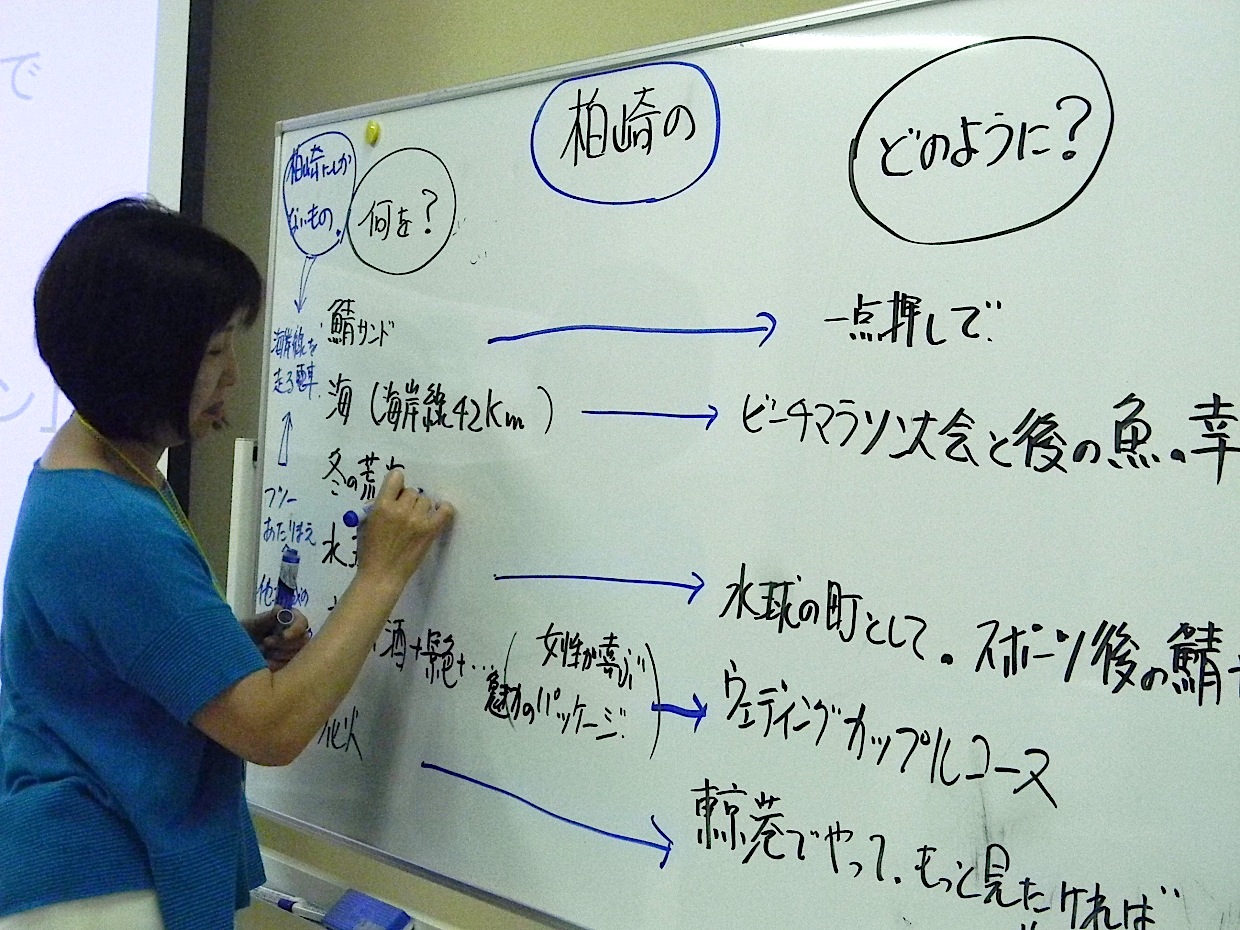 で
柏崎にしか
ないもの。
何を?
柏崎の
どのように?
海岸線を
走る電車。
フツー
あたりまえ
鯖サンド
一点押しで
海(海岸線42km)
ビーチマラソン大会と後の魚の幸
冬の荒
水球の町として。スポーツ後の鯖
酒+
女性が喜ぶ
魅力のパッケージ
ウェディングカップルコース
花火
東京湾でやって、もっと見たければ